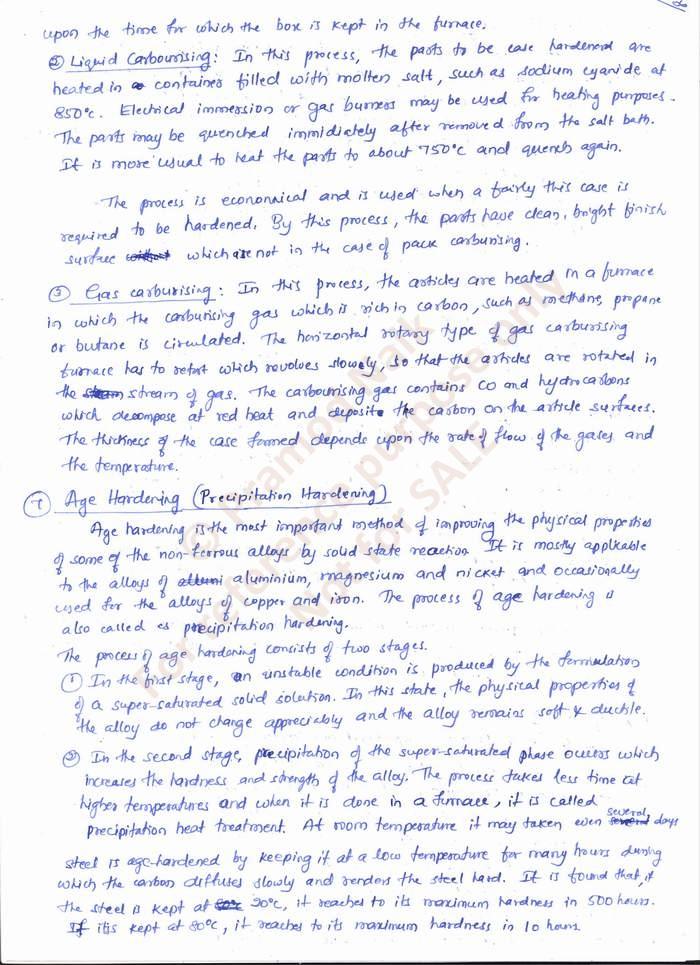 upon the time for which the box is kept in the furnace.
② Liquid Carbourising: In this process, the parts to be case hardened are
heated in a container filled with molten salt, such as sodium cyanide at
850°c. Electrical immersion or gas burners may be used for heating purposes.
The parts may be quenched immidiately after removed from the salt bath.
It is more usual to heat the parts to about 750°c and quench again.
The process is economical and is used when a fairly this case is
required to be hardened. By this process, the parts have clean, bright finish
surface which are not in the case of pack carburising.
③ Gas carburising: In this process, the articles are heated in a furnace
in which the carburising gas which is rich in carbon, such as methane, propane
or butane is circulated. The horizontal rotary type of gas carburising
furnace has to retort which revolves slowely, so that the articles are rotated in
the stream of gas. The carbourising gas contains CO and hydrocarbons
which decompose at red heat and deposite the carbon on the article surfaces.
The thickness of the case formed depends upon the rate of flow of the gases and
the temperature.
⑦ Age Hardening (Precipitation Hardening)
Age hardening is the most important method of improving the physical properties
of some of the non-ferrous alloys by solid state reaction. It is mostly applicable
to the alloys of aluminium, magnesium and nickel and occasionally
used for the alloys of copper and iron. The process of age hardening is
also called as precipitation hardening.
The process of age hardening consists of two stages.
① In the first stage, an unstable condition is produced by the formulation
of a super-saturated solid solution. In this state, the physical properties of
the alloy do not change appreciably and the alloy remains soft & ductile.
② In the second stage, precipitation of the super-saturated phase occurs which
increases the hardness and strength of the alloy. The process takes less time at
higher temperatures and when it is done in a furnace, it is called
precipitation heat treatment. At room temperature it may taken even several days
steel is age-hardened by keeping it at a low temperature for many hours during
which the carbon diffuses slowly and renders the steel hard. It is found that, if
the steel is kept at 20°c, it reaches to its maximum hardness in 500 hours.
If itis kept at 80°c, it reaches to its maximum hardness in 10 hours.
© Pramod Naik
For reference purpose only
Not for SALE